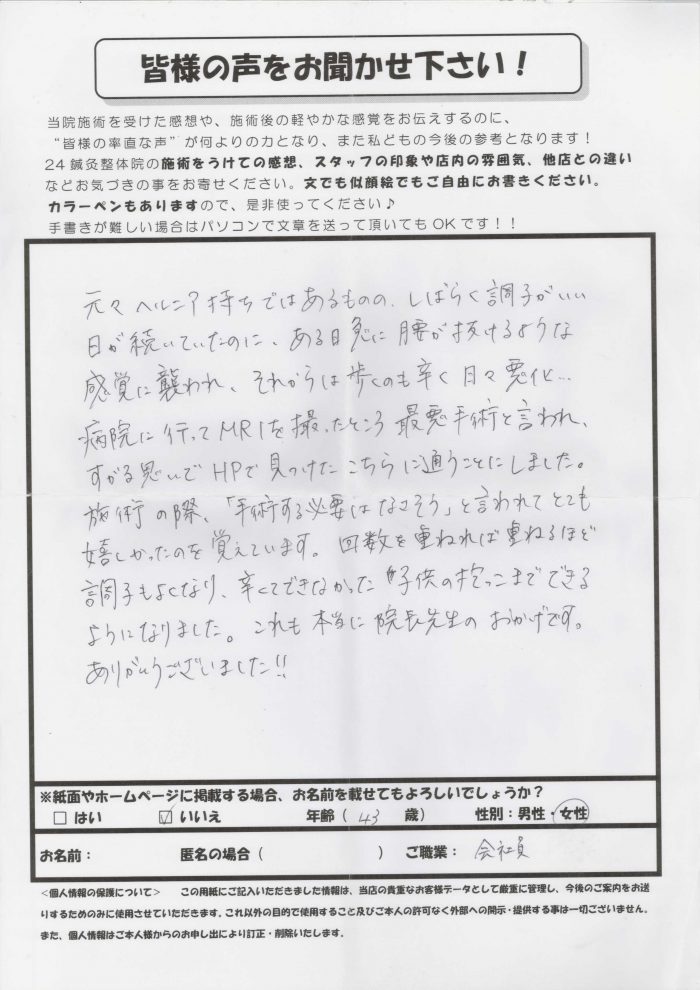 皆様の声をお聞かせ下さい！
当院施術を受けた感想や、施術後の軽やかな感覚をお伝えするのに、
“皆様の率直な声”が何よりの力となり、また私どもの今後の参考となります！
24鍼灸整体院の施術をうけての感想、スタッフの印象や店内の雰囲気、他店との違い
などお気づきの事をお寄せください。文でも似顔絵でもご自由にお書きください。
カラーペンもありますので、是非使ってください♪
手書きが難しい場合はパソコンで文章を送って頂いてもOKです！！
元々ヘルニア持ちではあるものの、しばらく調子がいい
日が続いていたのに、ある日急に腰が抜けるような
感覚に襲われ、それからは歩くのも辛く日々悪化…
病院に行ってMRIを撮ったところ最悪手術と言われ、
すがる思いでHPで見つけたこちらに通うことにしました。
施術の際、「手術する必要はなさそう」と言われてとても
嬉しかったのを覚えています。回数を重ねれば重ねるほど
調子もよくなり、辛くてできなかった子供の抱っこまでできる
ようになりました。これも本当に院長先生のおかげです。
ありがとうございました!!
※紙面やホームページに掲載する場合、お名前を載せてもよろしいでしょうか？
□ はい ☑ いいえ 年齢（ 43 歳） 性別：男性・女性
お名前： 匿名の場合（ ） ご職業： 会社員
＜個人情報の保護について＞ この用紙にご記入いただきました情報は、当店の貴重なお客様データとして厳重に管理し、今後のご案内をお送
りするためのみに使用させていただきます。これ以外の目的で使用すること及びご本人の許可なく外部への開示・提供する事は一切ございません。
また、個人情報はご本人様からのお申し出により訂正・削除いたします。